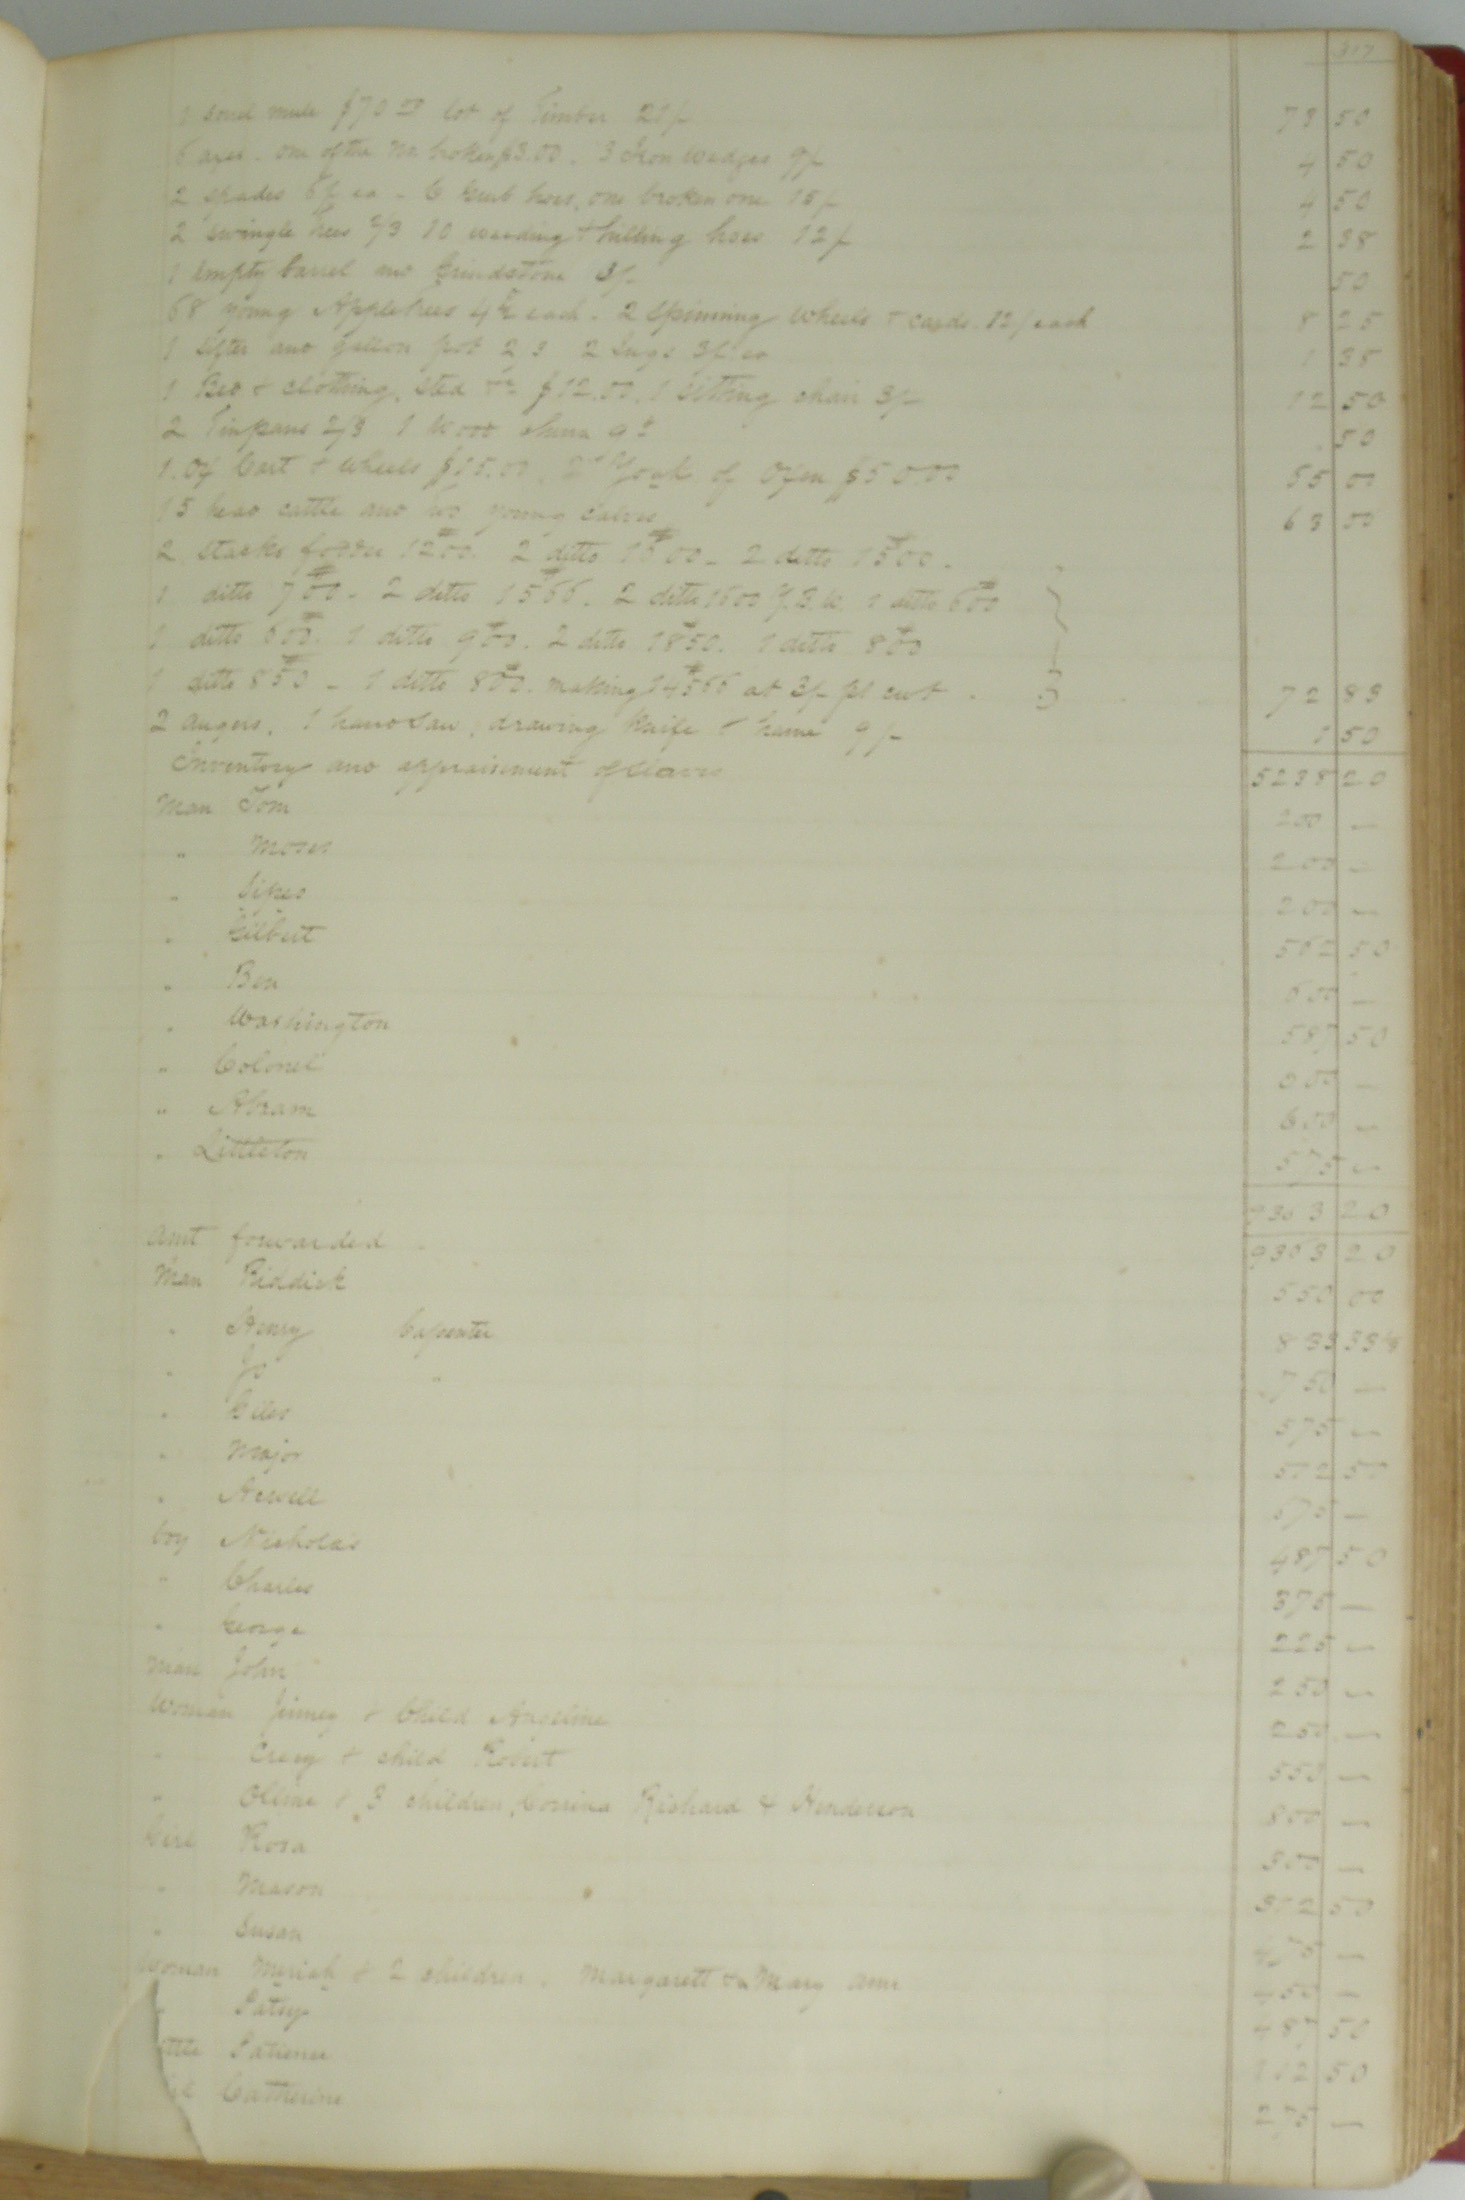 317
1 sorrel mule $70 00 lot of Timber 21/- 73 50
6 axes. one of the No broken $3.00. 3 Iron wedges 9/- 4 50
2 spades 6/ ea - 6 Grub hoes, one broken one 15/- 4 50
2 swingle trees 2/3 10 weeding & hilling hoes 12/- 2 38
1 empty barrel and Grindstone 3/- 50
68 young Appletrees 4½ each. 2 Spinning Wheels & cards 12/ each 8 25
1 sifter and gallon pot 2 3 2 Jugs 3/ ea 1 38
1 Bed & clothing, sted &c $12.00. 1 sitting chair 3/- 12 50
2 Tinpans 2/3 1 wood churn 9d 50
1 Ox Cart & wheels $15.00. 2 Yoak of Oxen $50.00 65 00
15 head cattle and two young calves 63 00
2 stacks fodder 1200. 2 ditto 1600 - 2 ditto 1500.
1 ditto 700 - 2 ditto 1566. 2 ditto 1600 1 ditto 600
1 ditto 600. 1 ditto 900. 2 ditto 1850. 1 ditto 800
1 ditto 850 - 1 ditto 800. making 14566 at 3/- pr cwt. 72 83
2 augers, 1 handsaw, drawing knife & hame 9/- 1 50
Inventory and appraisement of slaves 5238 20
Man Tom 200 —
" Moses 200 —
" 200 —
" Gilbert 562 50
" Ben 600 —
" Washington 587 50
" Colonel 600 —
" Abram 600 —
" Littleton 575 —
9363 20
Amt forwarded 9363 20
Man Riddick 550 00
" Henry Carpenter 833 33⅓
" Jo " 750 —
" Giles 575 —
" Major 562 50
" Newell 575 —
boy Nicholas 487 50
" Charles 375 —
" George 225 —
Man John 250 —
Woman Jinney & Child Angeline 250 —
" Creasy & child Robert 550 —
" Ollive & 3 children, Corrina Richard & Henderson 800 —
Girl Rosa 500 —
" Mason 312 50
" Susan 475 —
Woman Meriah & 2 children. Margarett & Mary Ann 450 —
" Patsy 487 50
ittle Patience 112 50
Catherine 275 —